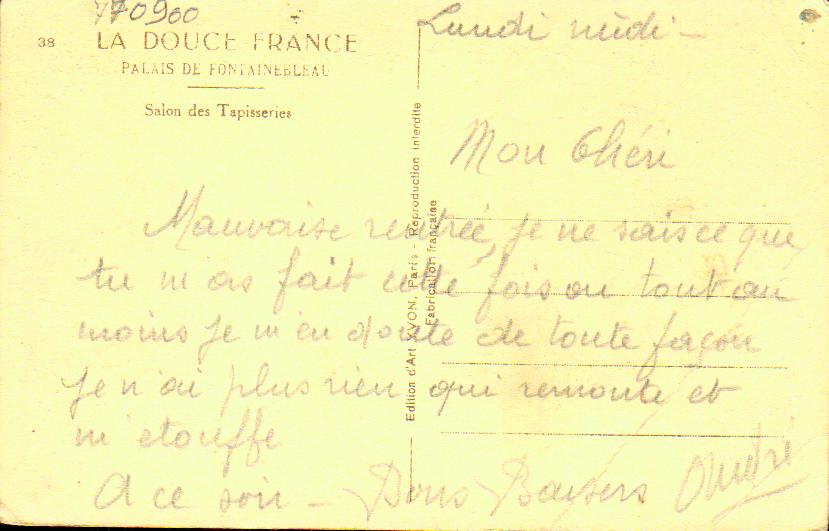 770900
38 LA DOUCE FRANCE
PALAIS DE FONTAINEBLEAU
Salon des Tapisseries
Edition d'Art YVON, Paris - Reproduction interdite
Fabrication française
Lundi midi -
Mon Chéri
Mauvaise rentrée, je ne sais ce que
tu m'as fait cette fois ou tout au
moins je m'en doute de toute façon
je n'ai plus rien qui remonte et
m'étouffe
A ce soir - Bons Baisers André